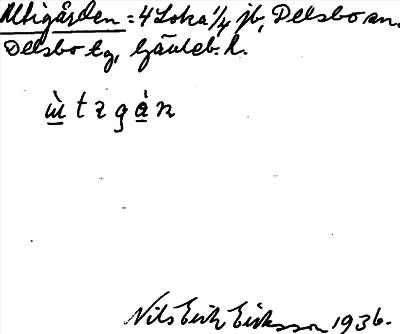 Uttigården = 4 Loka 1/4 jb, Delsbo sn.
Delsbo tg, Gävleb. l.
ùtzgàn
Nils Erik Eriksson 1936.